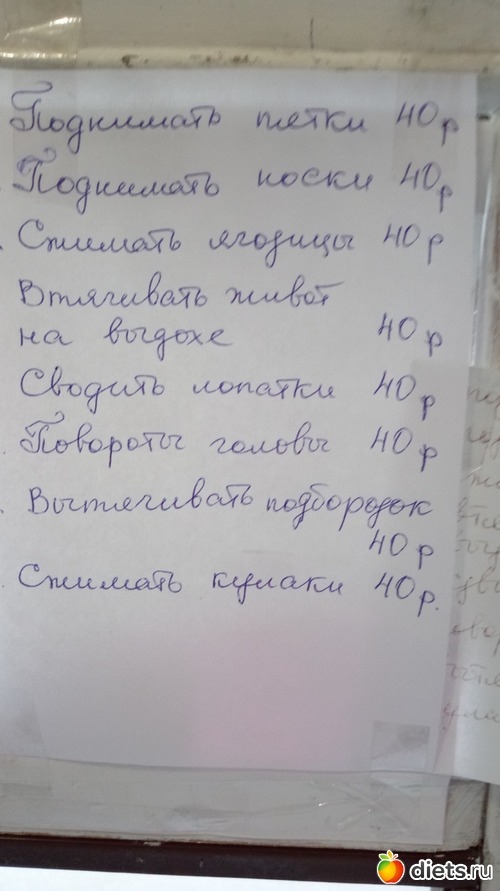 Поднимать пятки 40 р
Поднимать носки 40 р
Сжимать ягодицы 40 р
Втягивать живот
на выдохе 40 р
Сводить лопатки 40 р
Повороты головы 40 р
Вытягивать подбородок
40 р
Сжимать кулаки 40 р.
diets.ru